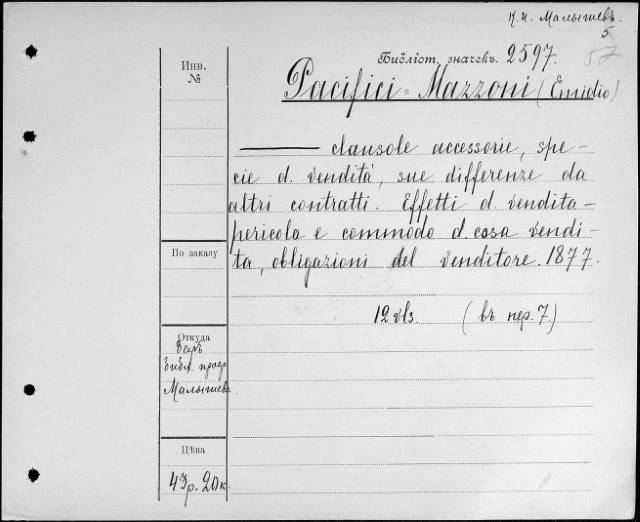 К. И. Малышевъ
5
57
Библіот. значекъ. 2597.
Инв.
№
Pacifici-Mazzoni (Emidio)
——— clausole accessorie, spe-
cie d. vendità, sue differenze da
altri contratti. Effetti d. vendita-
pericolo e commodo d. cosa vendi-
ta, obligazioni del venditore. 1877.
По заказу
12 vls. (въ пер. 7)
Откуда
Даръ
библ. проф.
Малышева
Цѣна
43 р. 20 к